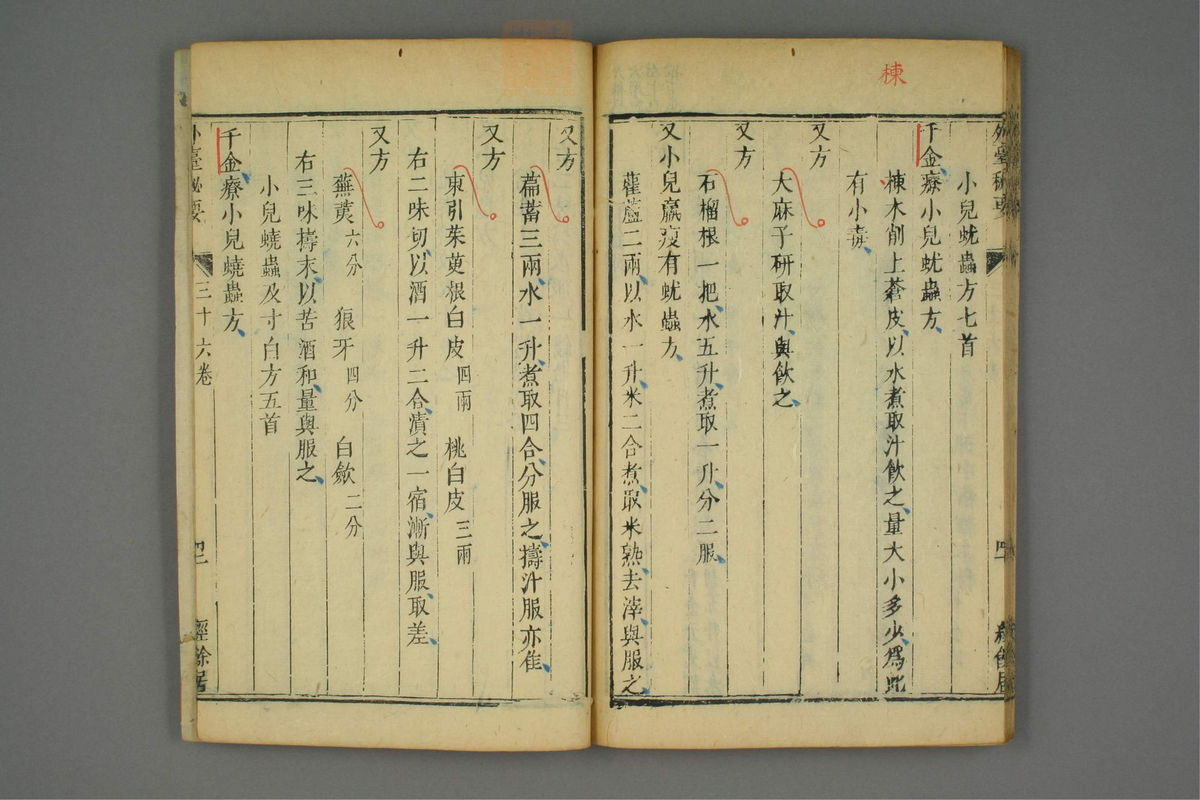 楝
外臺秘要
小兒蚘蟲方七首
千金療小兒蚘蟲方
楝木削上蒼皮以水煮取汁飲之量大小多少爲此
有小毒
又方
大麻子研取汁與飲之
又方
石榴根一把水五升煮取一升分二服
又小兒羸瘦有蚘蟲方
雚蘆二兩以水一升米二合煮取米熟去滓與服之
又方
萹蓄三兩水一升煮取四合分服之擣汁服亦佳
又方
東引茱萸根白皮四兩 桃白皮三兩
右二味切以酒一升二合漬之一宿漸與服取差
又方
蕪荑六分 狼牙四分 白歛二分
右三味擣末以苦酒和量與服之
小兒蟯蟲及寸白方五首
千金療小兒蟯蟲方
外臺秘要 三十六卷 經餘居